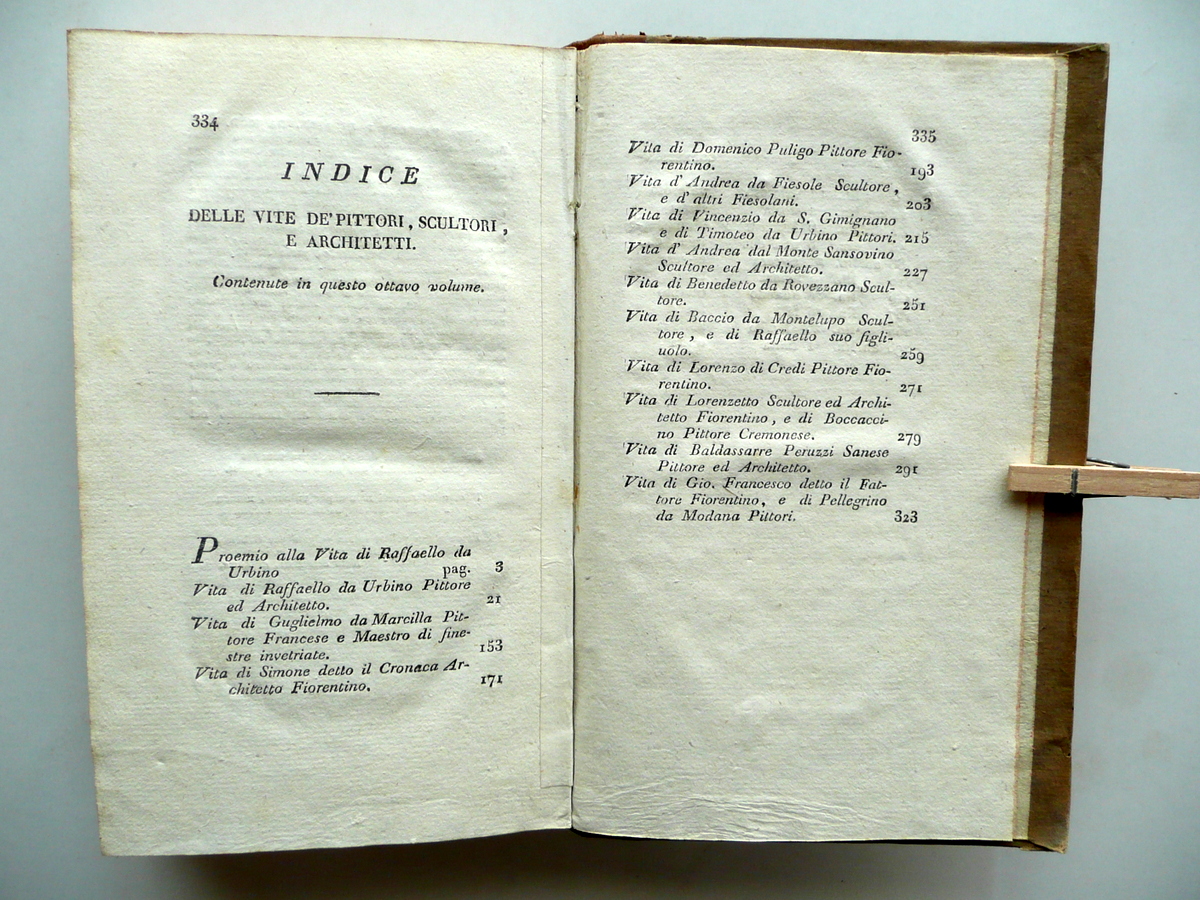 334
INDICE
DELLE VITE DE' PITTORI, SCULTORI,
E ARCHITETTI.
Contenute in questo ottavo volume.
Proemio alla Vita di Raffaello da
Urbino pag. 3
Vita di Raffaello da Urbino Pittore
ed Architetto. 21
Vita di Guglielmo da Marcilla Pit-
tore Francese e Maestro di fine-
stre invetriate. 153
Vita di Simone detto il Cronaca Ar-
chitetto Fiorentino. 171
335
Vita di Domenico Puligo Pittore Fio-
rentino. 193
Vita d' Andrea da Fiesole Scultore,
e d' altri Fiesolani. 203
Vita di Vincenzio da S. Gimignano
e di Timoteo da Urbino Pittori. 215
Vita d' Andrea dal Monte Sansovino
Scultore ed Architetto. 227
Vita di Benedetto da Rovezzano Scul-
tore. 251
Vita di Baccio da Montelupo Scul-
tore, e di Raffaello suo figli-
uolo. 259
Vita di Lorenzo di Credi Pittore Fio-
rentino. 271
Vita di Lorenzetto Scultore ed Archi-
tetto Fiorentino, e di Boccacci-
no Pittore Cremonese. 279
Vita di Baldassarre Peruzzi Sanese
Pittore ed Architetto. 291
Vita di Gio. Francesco detto il Fat-
tore Fiorentino, e di Pellegrino
da Modana Pittori. 323